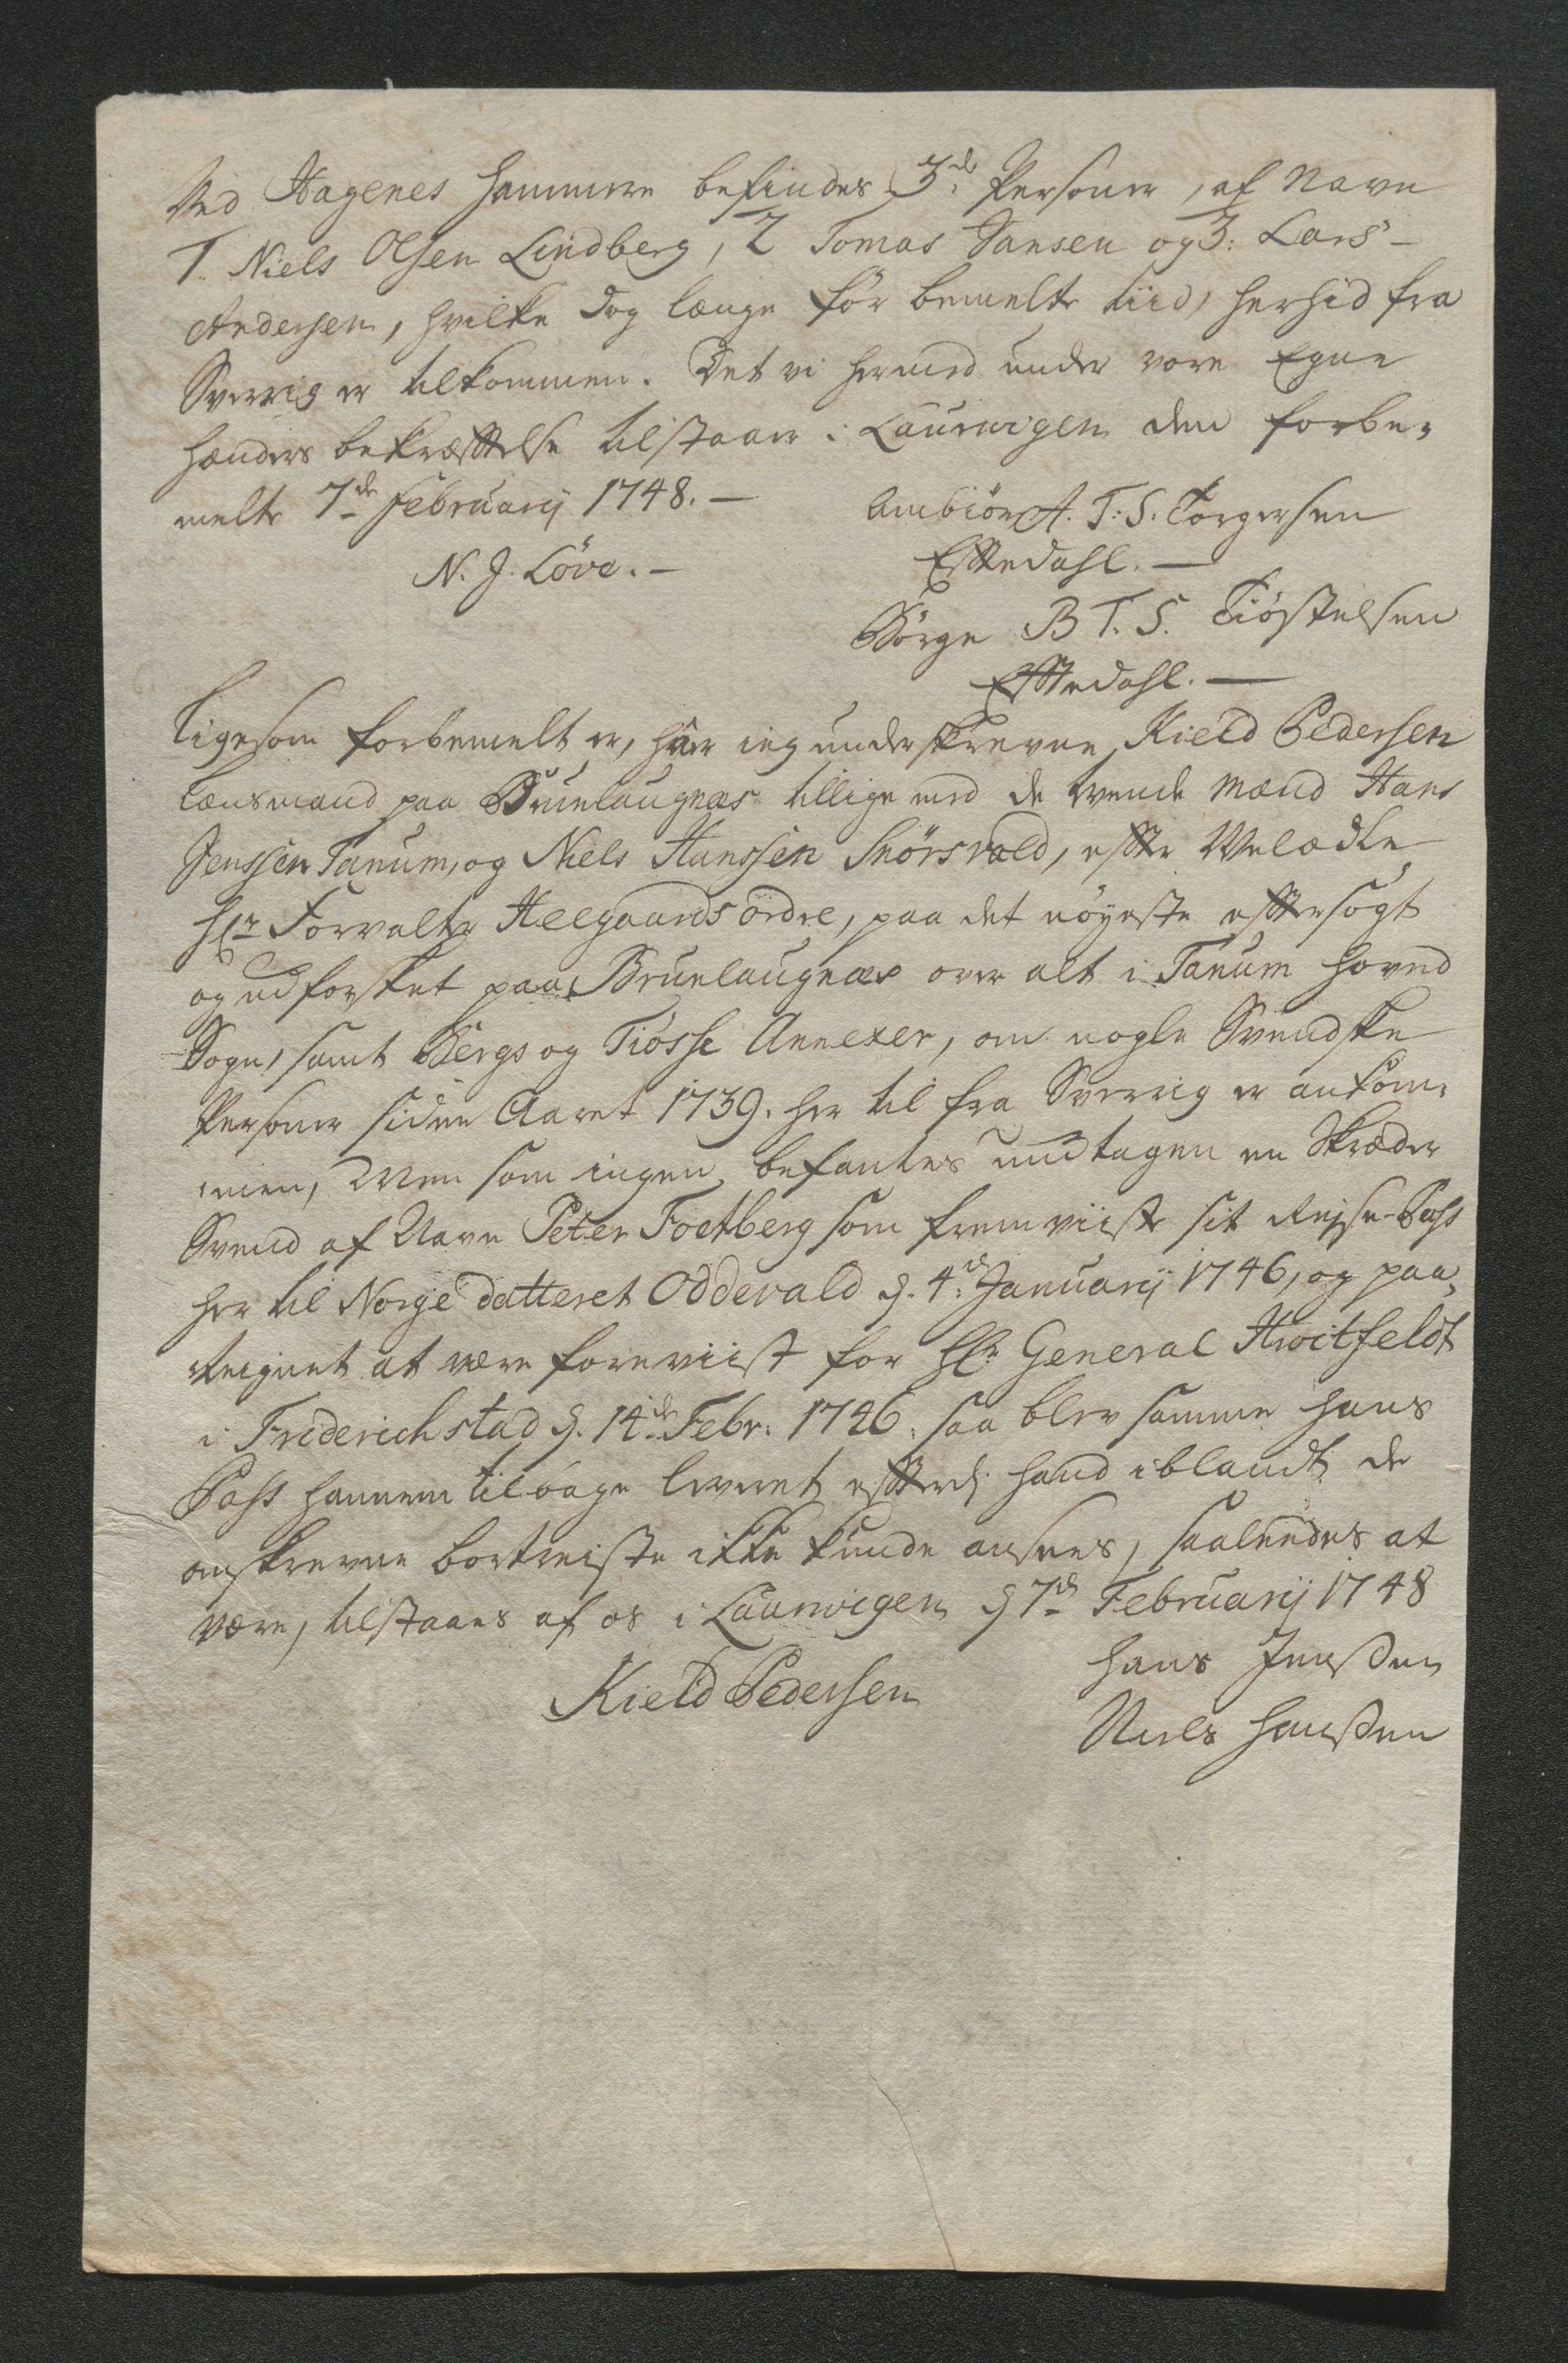 Ved Hagenes Hammere befindes 3de Personer, af Navn
1. Niels Olsen Lindberg, 2 Tomas Jansen og 3: Lars
Andersen, hvilke dog længe för bemelte tiid, herhid fra
Sverrig er tilkommen. Det vi hermed under vore Egne
hænders bekræftelse tilstaar i Laurwigen den forbe-
melte 7de Februarij 1748. —
Ambiön A. T: S. Torgersen
N. J. Löve. —
Eftedahl. —
Börge B T. S. Tiöstelsen
Eftedahl. —
Ligesom forbemelt er, har ieg underskrevne, Kield Pedersen
Lænsmand paa Brunlaugnæs tillige med de tvende Mænd Hans
Jenssen Tanum, og Niels Hanssen Snörsvald, efter Velædle
Hr Forvalter Heegaards ordre, paa det nöyeste eftersögt
og udforsket paa Brunlaugnæs over alt i Tanum hoved
Sogn, samt Bergs og Tiösse Annexer, om nogle Svendske
Personer siden Aaret 1739. her til fra Sverrig er ankom-
men, Men som ingen befantes undtagen en Skræder
Svend af Navn Peter Foetberg som fremviiste sit Reise-Pass
her til Norge datteret Oddevald d. 4de Januarij 1746, og paa-
teignet at være foreviist for Hr General Hwitfeldt
i Friderichstad d. 14de Febr: 1746. saa blev samme hans
Pass hannem tilbage leveret, efterdj hand iblandt de
anskrevne bortreiste ikke kunde ansees, saaleedes at
være, tilstaaes af os i Laurwigen d 7de Februarij 1748
Kield Pedersen
Hans Jenssen
Niels Hanssen